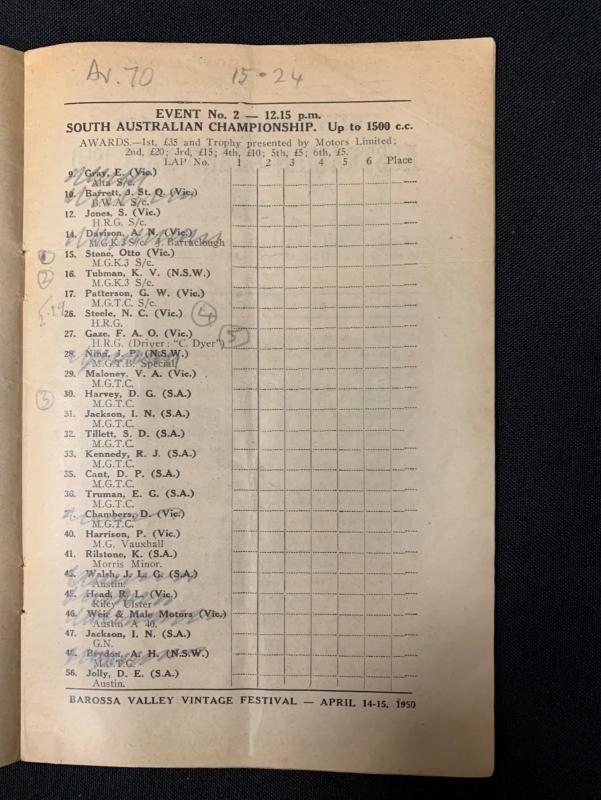 Av. 70 15-24
EVENT No. 2 — 12.15 p.m.
SOUTH AUSTRALIAN CHAMPIONSHIP. Up to 1500 c.c.
AWARDS.—1st, £35 and Trophy presented by Motors Limited;
2nd, £20; 3rd, £15; 4th, £10; 5th, £5; 6th, £5.
LAP No. 1 2 3 4 5 6 Place
9. Gray, E. (Vic.)
Alta S/c.
10. Barrett, J. St. Q. (Vic.)
B.W.A. S/c.
12. Jones, S. (Vic.)
H.R.G. S/c.
14. Davison, A. N. (Vic.)
M.G.K.3 S/c. Barraclough
1 15. Stone, Otto (Vic.)
M.G.K.3 S/c.
2 16. Tubman, K. V. (N.S.W.)
M.G.K.3 S/c.
17. Patterson, G. W. (Vic.)
M.G.T.C. S/c.
26. Steele, N. C. (Vic.) 4
H.R.G.
27. Gaze, F. A. O. (Vic.)
H.R.G. (Driver: "C. Dyer") 5
28. Nind, J. P. (N.S.W.)
M.G.T.B. Special
29. Maloney, V. A. (Vic.)
M.G.T.C.
3 30. Harvey, D. G. (S.A.)
M.G.T.C.
31. Jackson, I. N. (S.A.)
M.G.T.C.
32. Tillett, S. D. (S.A.)
M.G.T.C.
33. Kennedy, R. J. (S.A.)
M.G.T.C.
35. Cant, D. P. (S.A.)
M.G.T.C.
36. Truman, E. G. (S.A.)
M.G.T.C.
Chambers, D. (Vic.)
M.G.T.C.
40. Harrison, P. (Vic.)
M.G. Vauxhall
41. Rilstone, K. (S.A.)
Morris Minor.
Walsh, J. L. G. (S.A.)
Austin.
Head, R. L. (Vic.)
Riley Ulster
46. Weir & Male Motors (Vic.)
Austin A 40.
47. Jackson, I. N. (S.A.)
G.N.
Brydon, A. H. (N.S.W.)
M.G.T.C.
56. Jolly, D. E. (S.A.)
Austin.
BAROSSA VALLEY VINTAGE FESTIVAL — APRIL 14-15, 1950